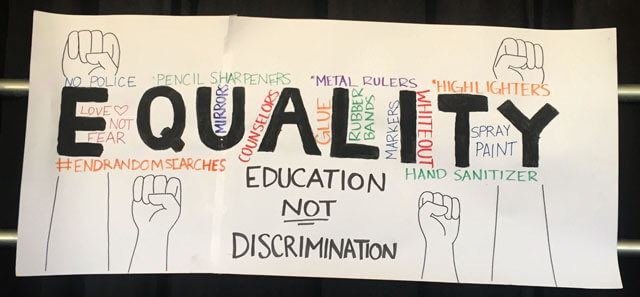 NO POLICE
PENCIL SHARPENERS
*METAL RULERS
*HIGHLIGHTERS
EQUALITY
LOVE♡
NOT
FEAR
MIRRORS
COUNSELORS
GLUE
RUBBER
BANDS
MARKERS
WHITEOUT
SPRAY
PAINT
#ENDRANDOMSEARCHES
HAND SANITIZER
EDUCATION
NOT
DISCRIMINATION